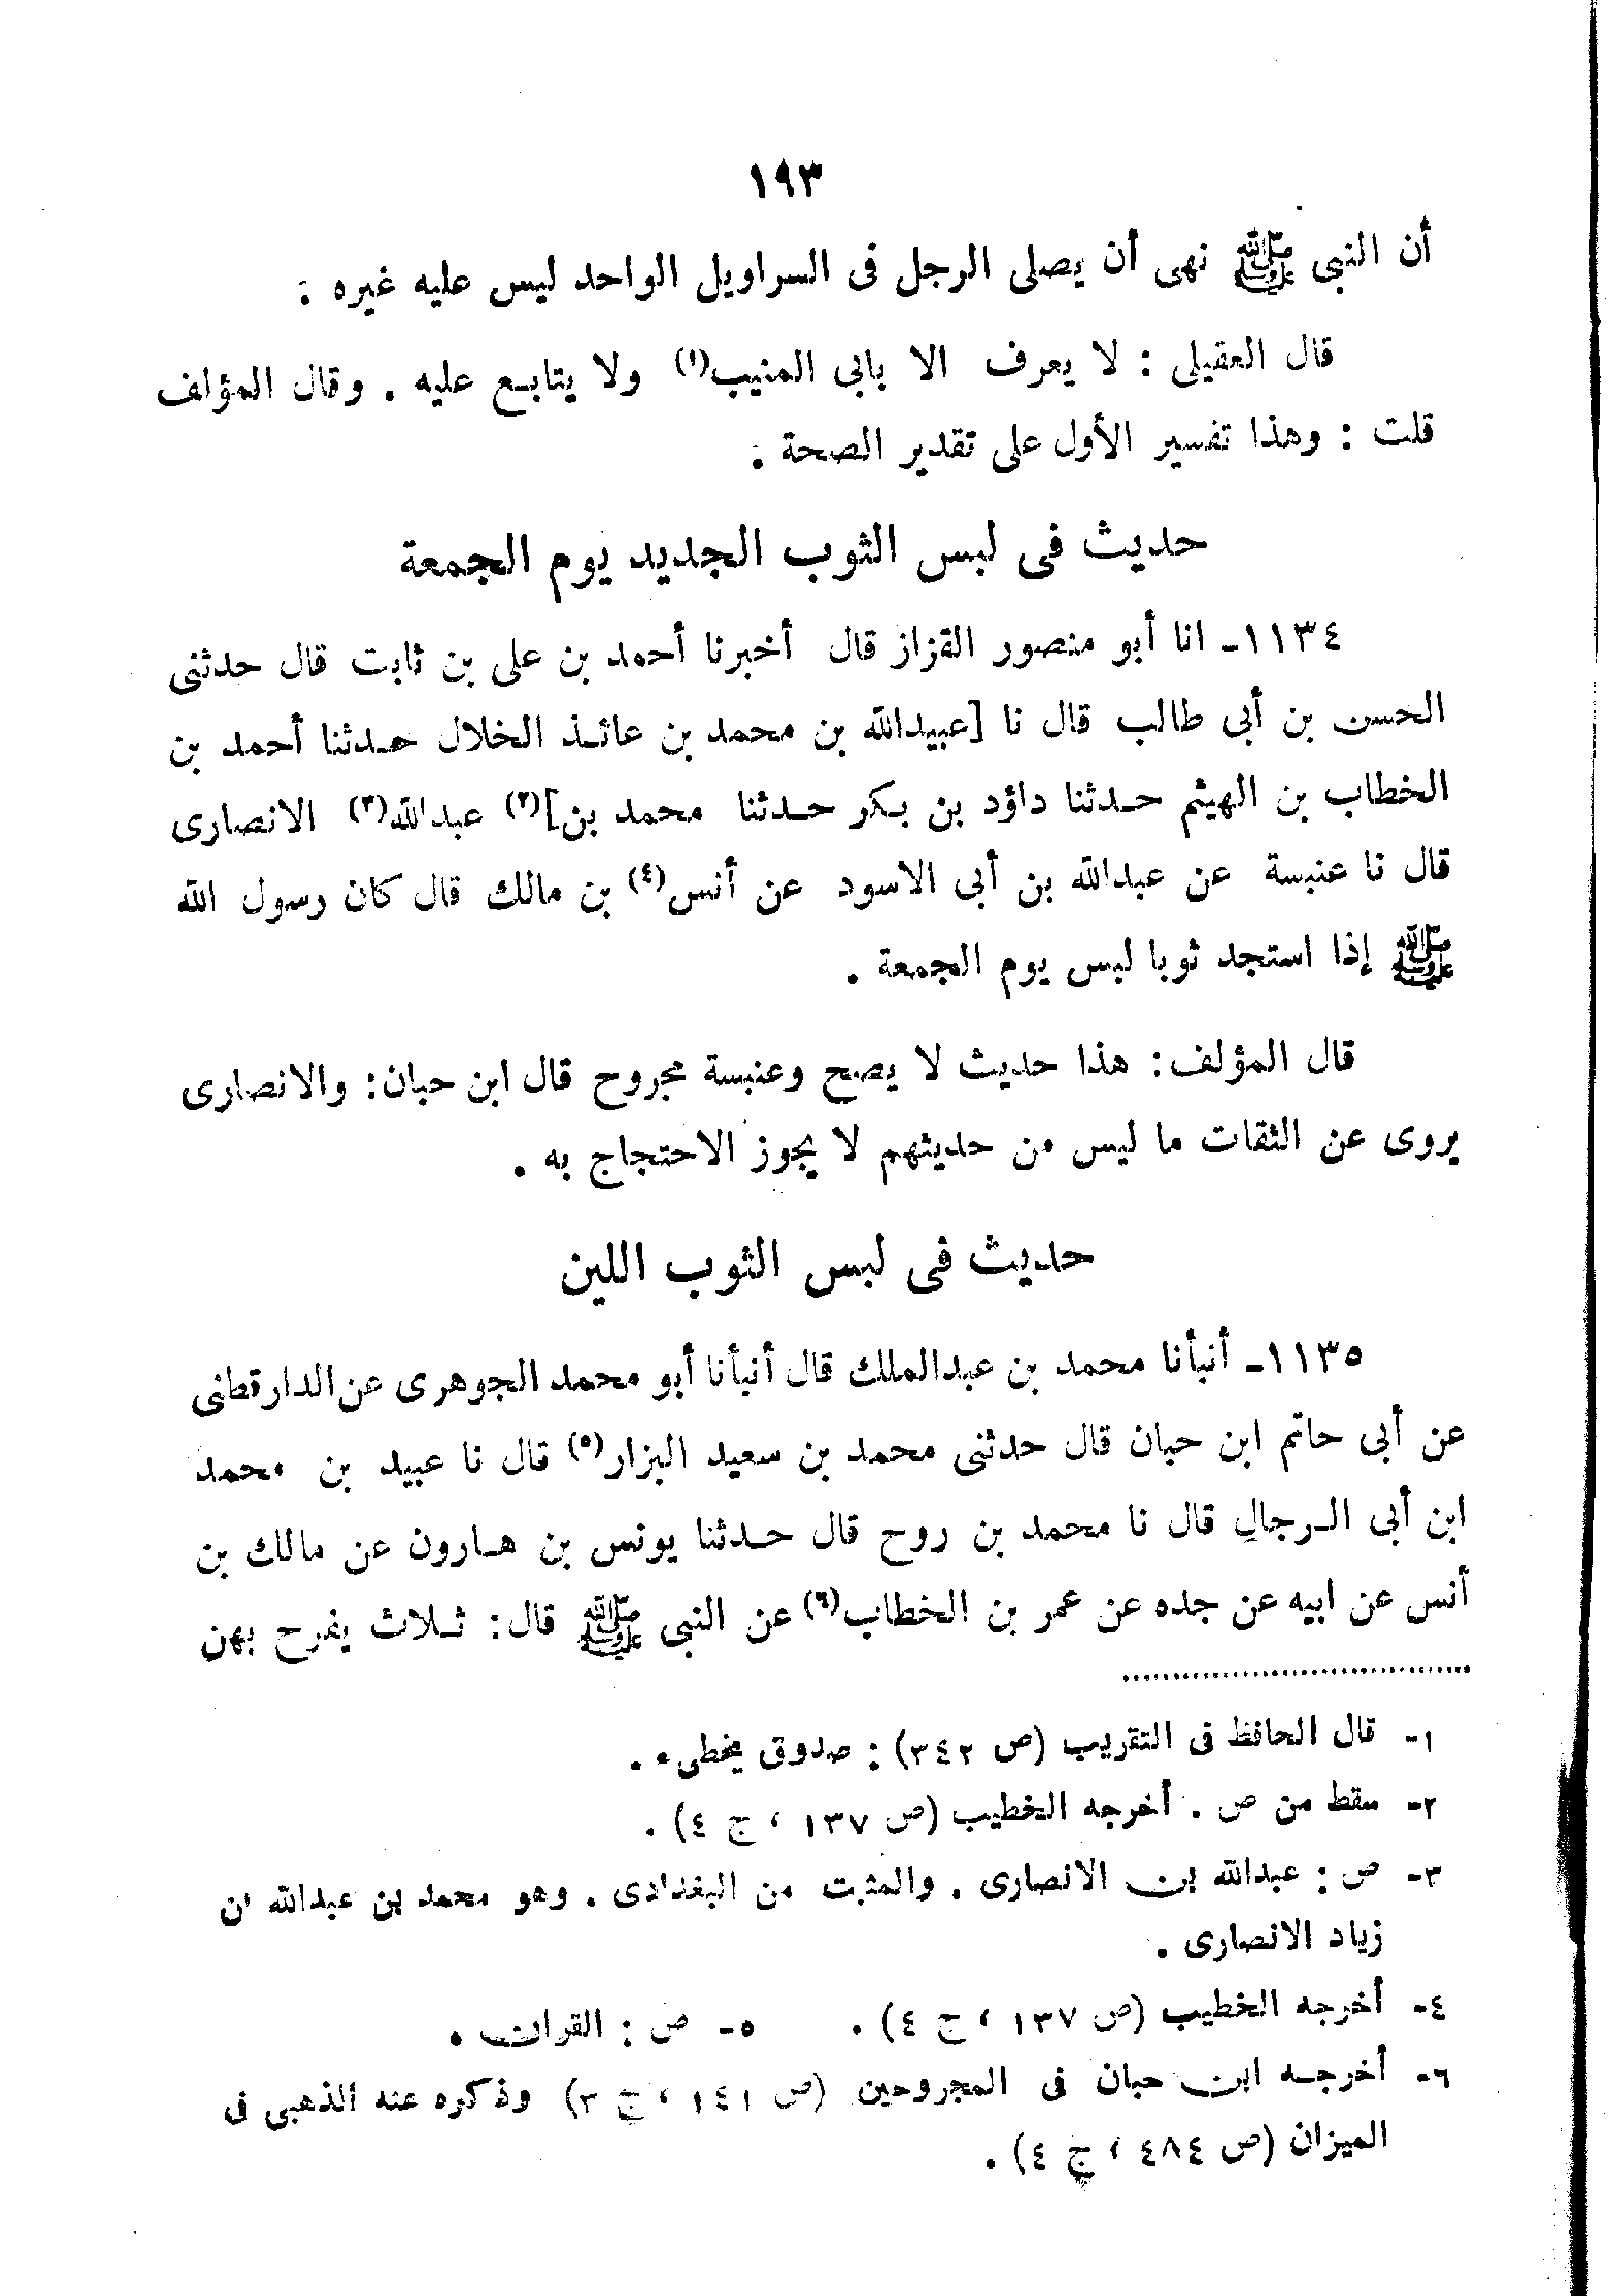 ١٩٣
أن النبى ﷺ نهى أن يصلى الرجل فى السراويل الواحد ليس عليه غيره :
قال العقيلى : لا يعرف الا بابى المنيب(١) ولا يتابع عليه . وقال المؤلف
قلت : وهذا تفسير الأول على تقدير الصحة .
حديث فى لبس الثوب الجديد يوم الجمعة
١١٣٤- انا أبو منصور القزاز قال أخبرنا أحمد بن على بن ثابت قال حدثنى
الحسن بن أبى طالب قال نا [عبيدالله بن محمد بن عائذ الخلال حدثنا أحمد بن
الخطاب بن الهيثم حدثنا داؤد بن بكر حدثنا محمد بن](٢) عبدالله(٣) الانصارى
قال نا عنبسة عن عبدالله بن أبى الاسود عن أنس(٤) بن مالك قال كان رسول الله
ﷺ إذا استجد ثوبا لبس يوم الجمعة .
قال المؤلف: هذا حديث لا يصح وعنبسة مجروح قال ابن حبان: والانصارى
يروى عن الثقات ما ليس من حديثهم لا يجوز الاحتجاج به .
حديث فى لبس الثوب اللين
١١٣٥- أنبأنا محمد بن عبدالملك قال أنبأنا أبو محمد الجوهرى عن الدارقطنى
عن أبى حاتم ابن حبان قال حدثنى محمد بن سعيد البزار(٥) قال نا عبيد بن محمد
ابن أبى الرجال قال نا محمد بن روح قال حدثنا يونس بن هارون عن مالك بن
أنس عن ابيه عن جده عن عمر بن الخطاب(٦) عن النبى ﷺ قال: ثلاث يفرح بهن
١- قال الحافظ فى التقريب (ص ٣٤٢) : صدوق يخطىء .
٢- سقط من ص . أخرجه الخطيب (ص ١٣٧ ، ج ٤) .
٣- ص : عبدالله بن الانصارى . والمثبت من البغدادى . وهو محمد بن عبدالله ان
زياد الانصارى .
٤- أخرجه الخطيب (ص ١٣٧ ، ج ٤) . ٥- ص : القران .
٦- أخرجه ابن حبان فى المجروحين (ص ١٤١ ، ج ٣) وذكره عنه الذهبى فى
الميزان (ص ٤٨٤ ، ج ٤) .